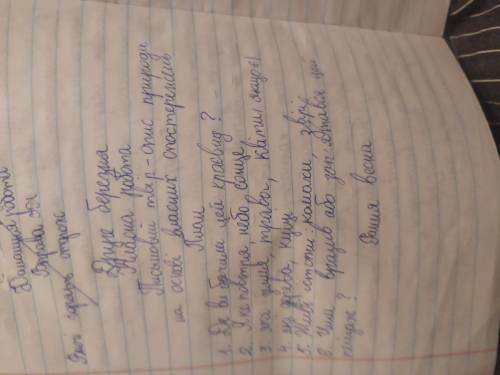 Домашня робота
Вправа
Друге березня
Класна робота
Письмовий твір-опис природи
на основі власних спостережень
План
1. Де ви бачили цей краєвид?
2. Яке повітря, небо, сонце
3. яка земля, трава, квіти
4. як дерева, кущі
5. Живі істоти: комахи, звірі
6. Чим вразив або запам'ятався цей
пейзаж?
Рання весна